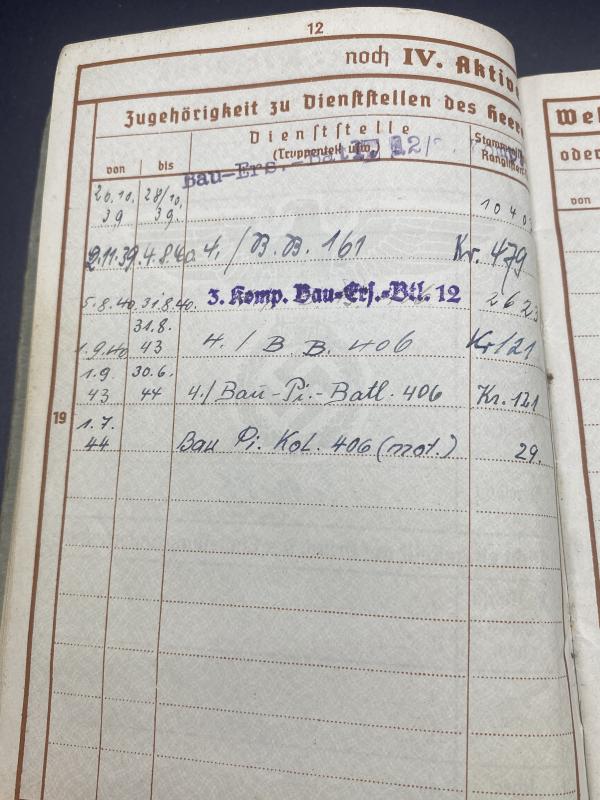 12
noch IV. Aktive
Zugehörigkeit zu Dienststellen des Heere
von bis Dienststelle (Truppenteil usw.) Stammrolle Ranglisten
20.10. 39 28/10. 39. Bau-Ers.-Batl. 12 1040
2.11.39. 4.8.40. 4./B.B. 161 Kr. 479
5.8.40. 31.8.40. 3. Komp. Bau-Ers.-Btl. 12 2623
1.9.40 31.8. 43 4./B.B. 406 Kr/21
1.9. 43 30.6. 44 4./Bau-Pi.-Batl. 406 Kr. 121
19
1.7. 44 Bau Pi. Kol. 406 (mot.) 29.
oder
von